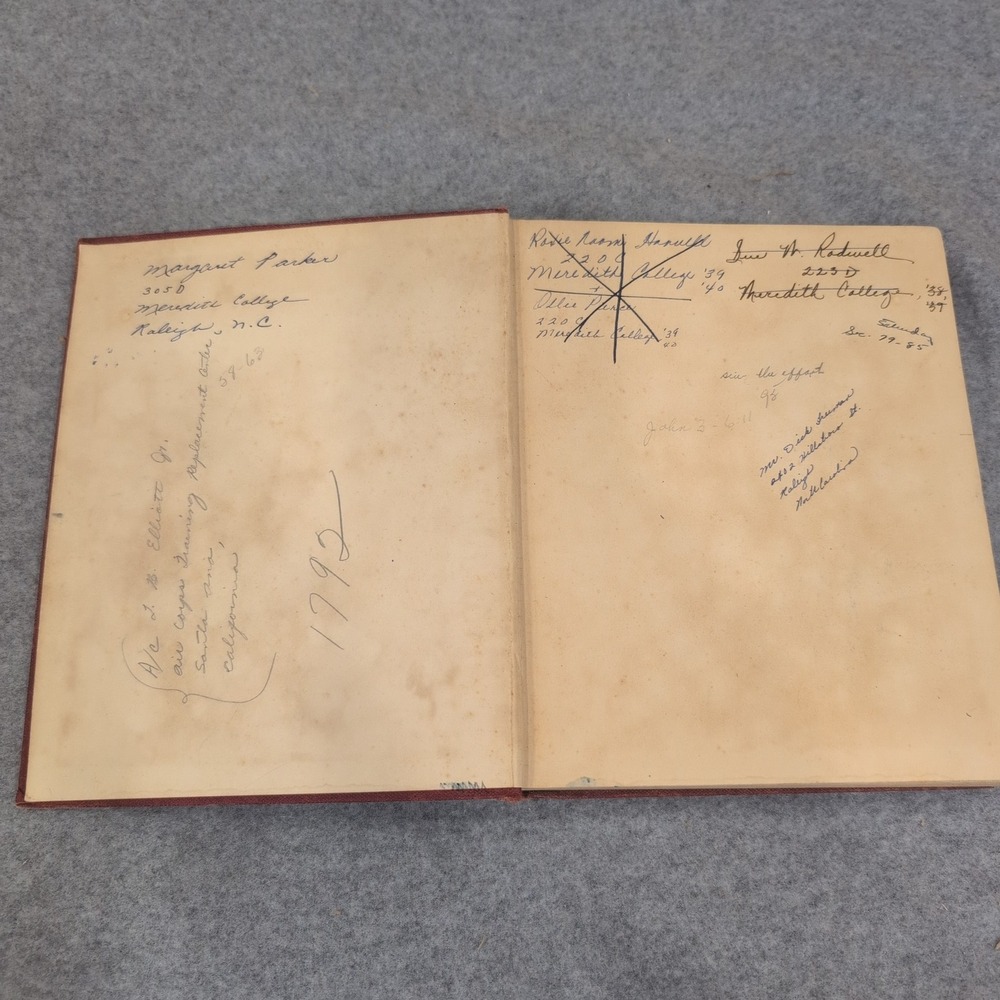 Margaret Parker
305D
Meredith College
Raleigh, N.C.
58-68
A/c J. B. Elliott Jr.
Air Corps Training Replacement Center
Santa Ana,
California
1792
220C
Meredith College '39
+ '40
Ollie
220C
Meredith College '39
40
W. Rodwell
223D
Meredith College, '38,
'39
Saturday
Sec. 79-85
the effort
98
John 3-6:11
Mr. Dick Freeman
2402 Hillsboro St.
Raleigh
North Carolina